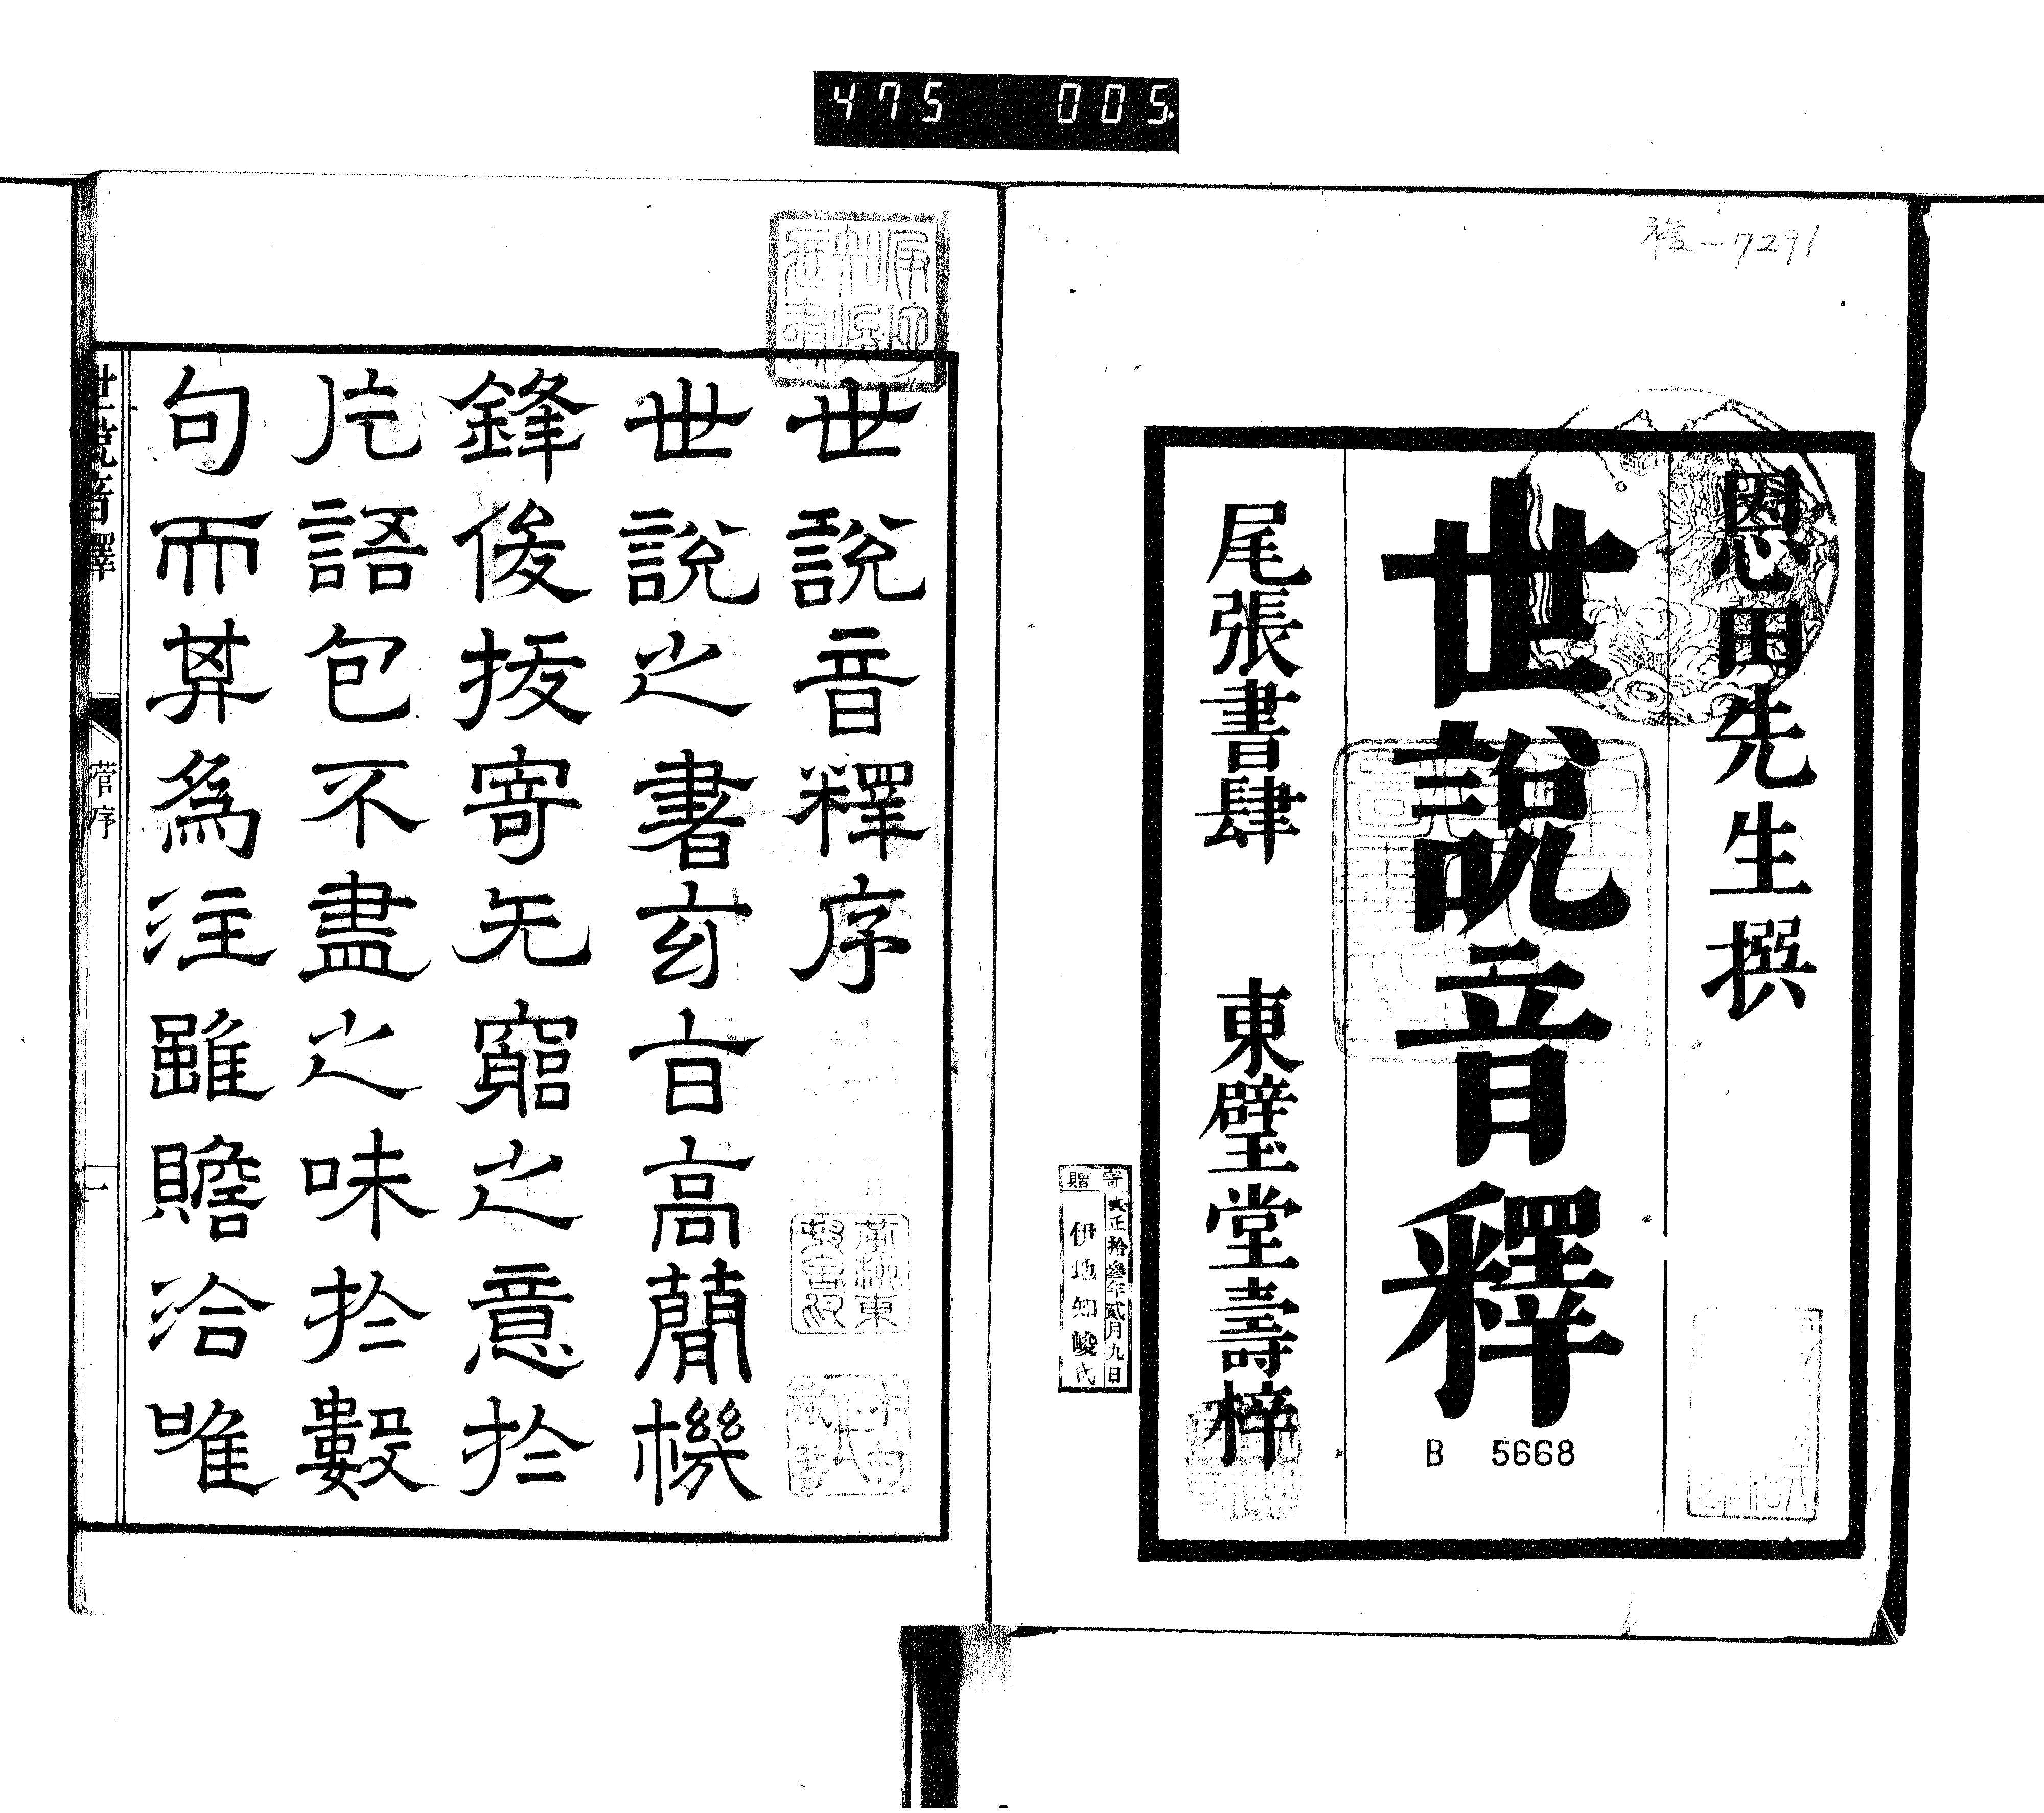 475 005
複-7291
恩田先生撰
世說音釋
尾張書肆 東壁堂壽梓
B 5668
寄贈
大正拾參年貳月九日
伊地知峻氏
世說音釋序
世說之書玄旨高簡機
鋒俊拔寄无窮之意於
片語包不盡之味於數
句而其為注雖贍洽唯
世說音釋 菅序 一